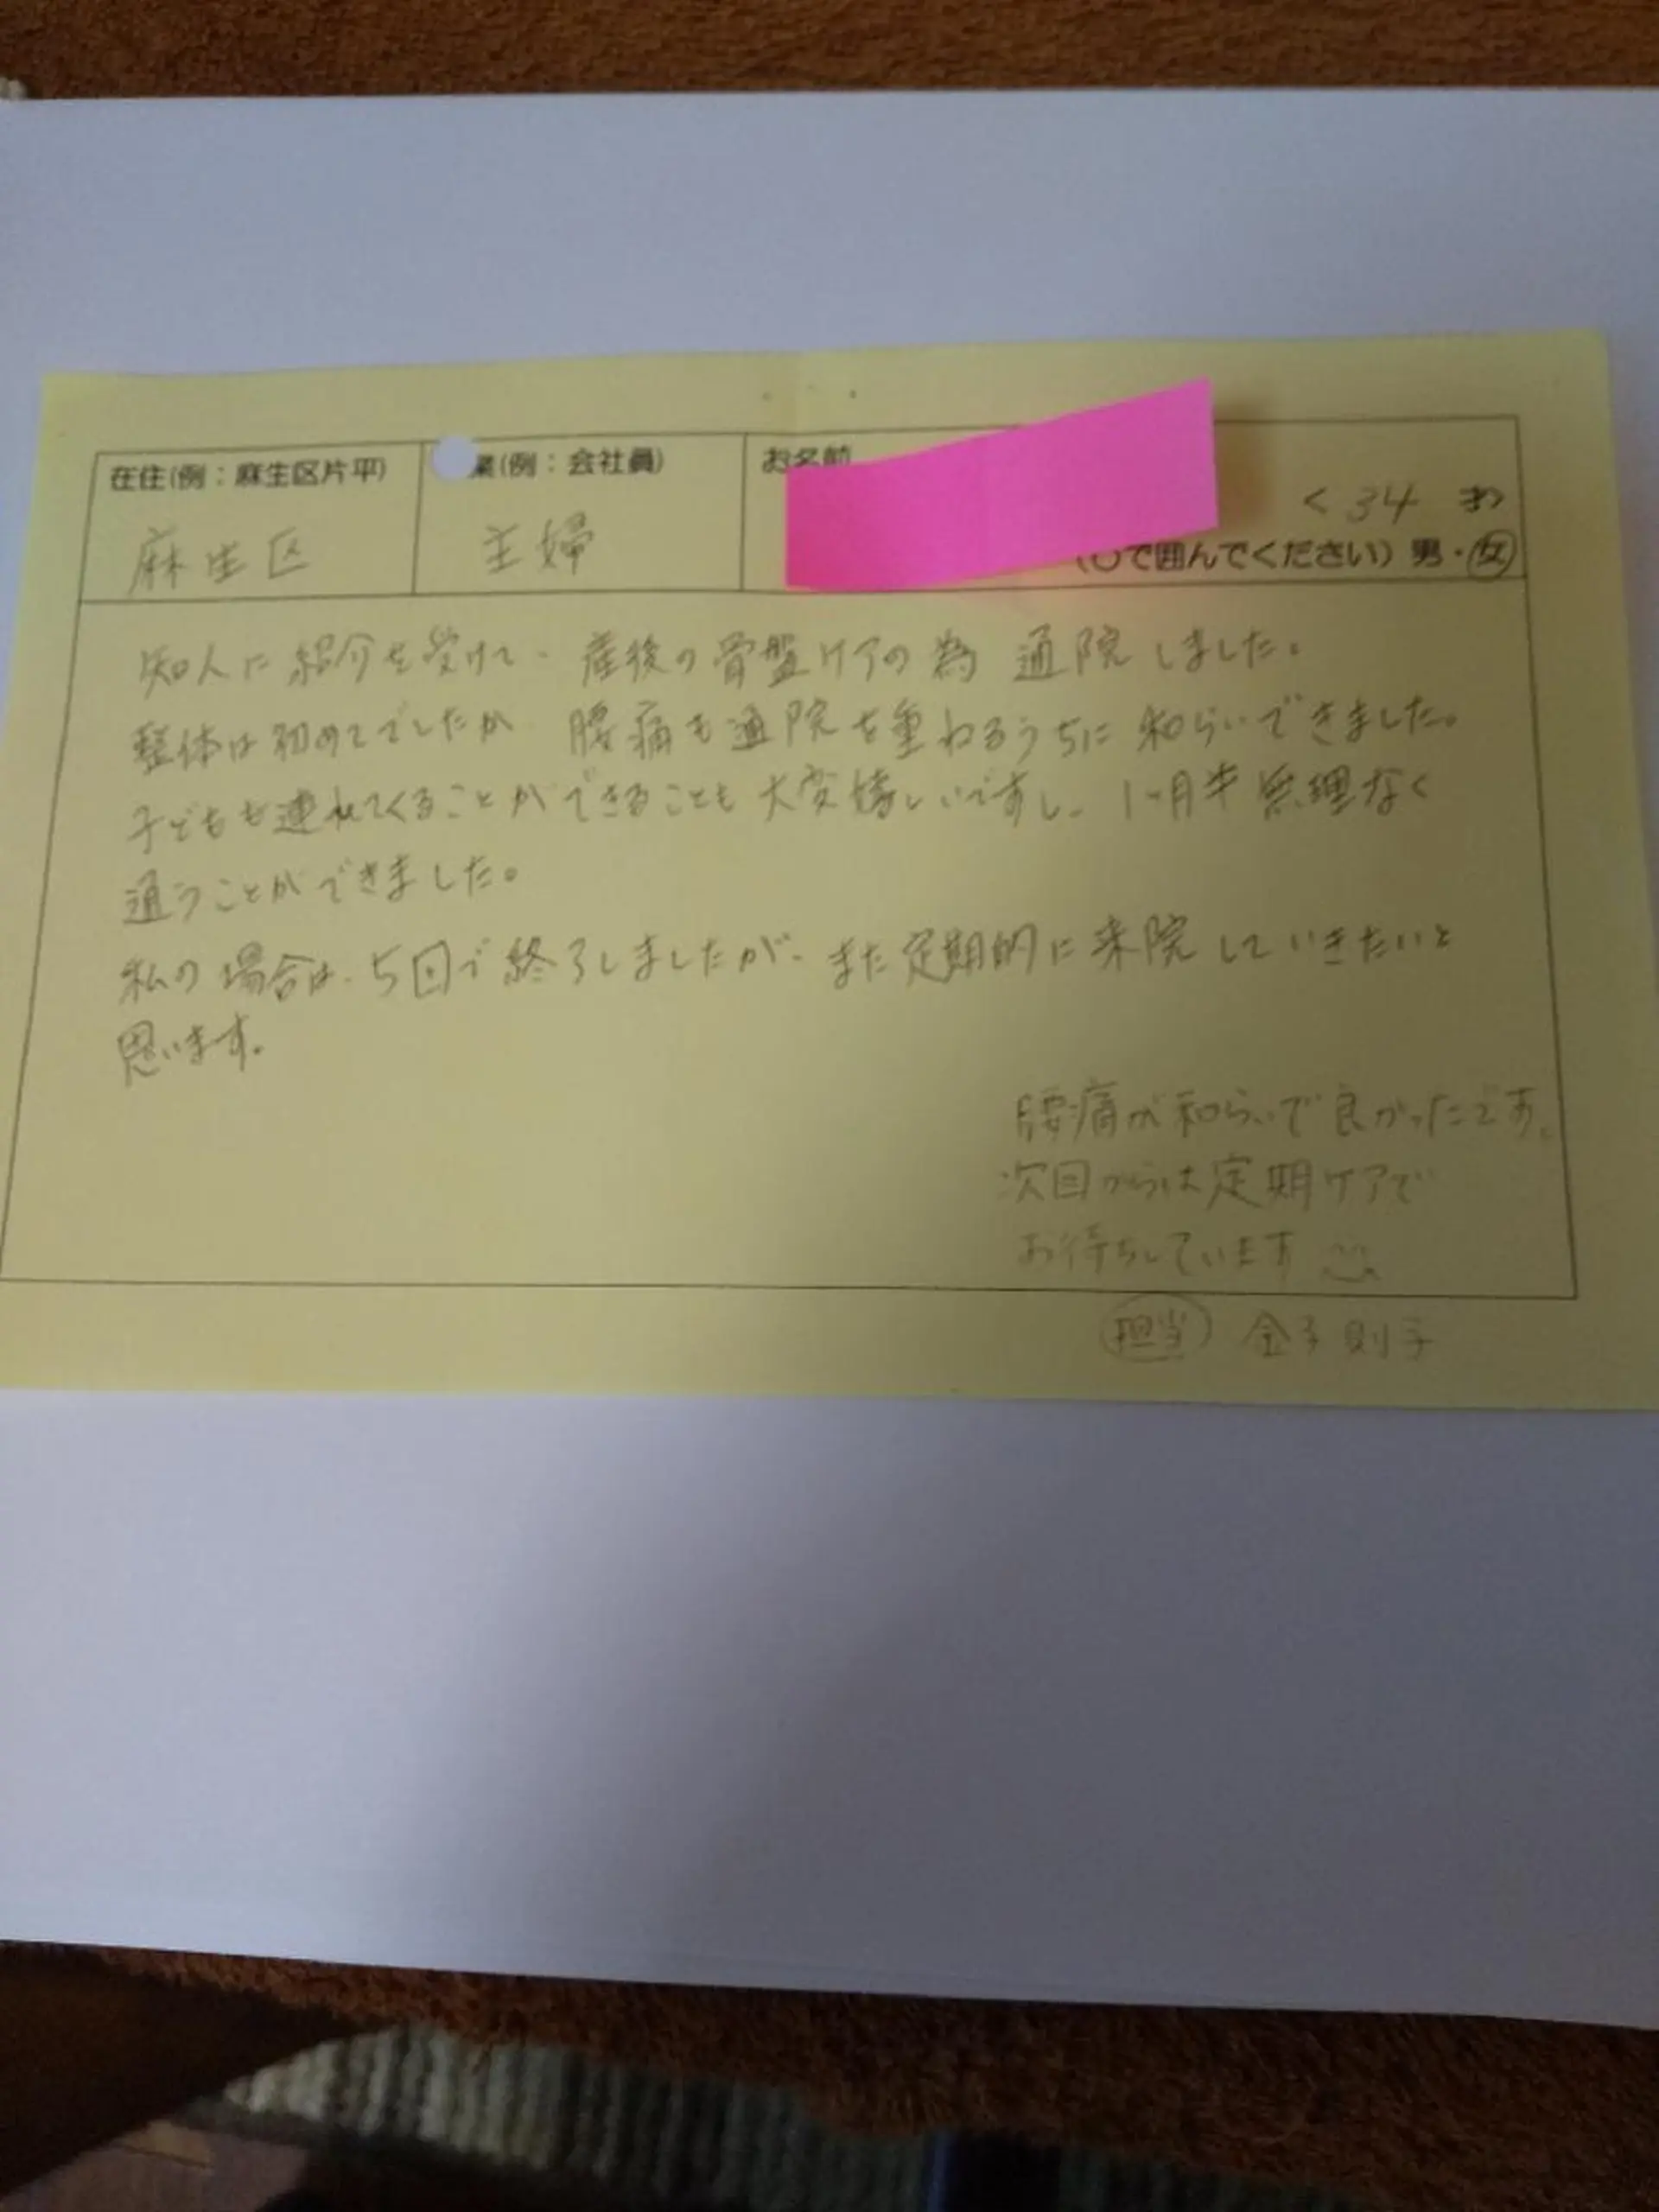 在住(例：麻生区片平)
業(例：会社員)
お名前
麻生区
主婦
34 才
(○で囲んでください) 男・女
知人に紹介を受けて、産後の骨盤ケアの為 通院しました。
整体は初めてでしたが、腰痛も通院を重ねるうちに和らいできました。
子どもを連れてくることができることも大変嬉しいですし、1ヶ月半 無理なく
通うことができました。
私の場合は、5回で終了しましたが、また定期的に来院していきたいと
思います。
腰痛が和らいで良かったです。
次回からは定期ケアで
お待ちしています
担当 金子則子